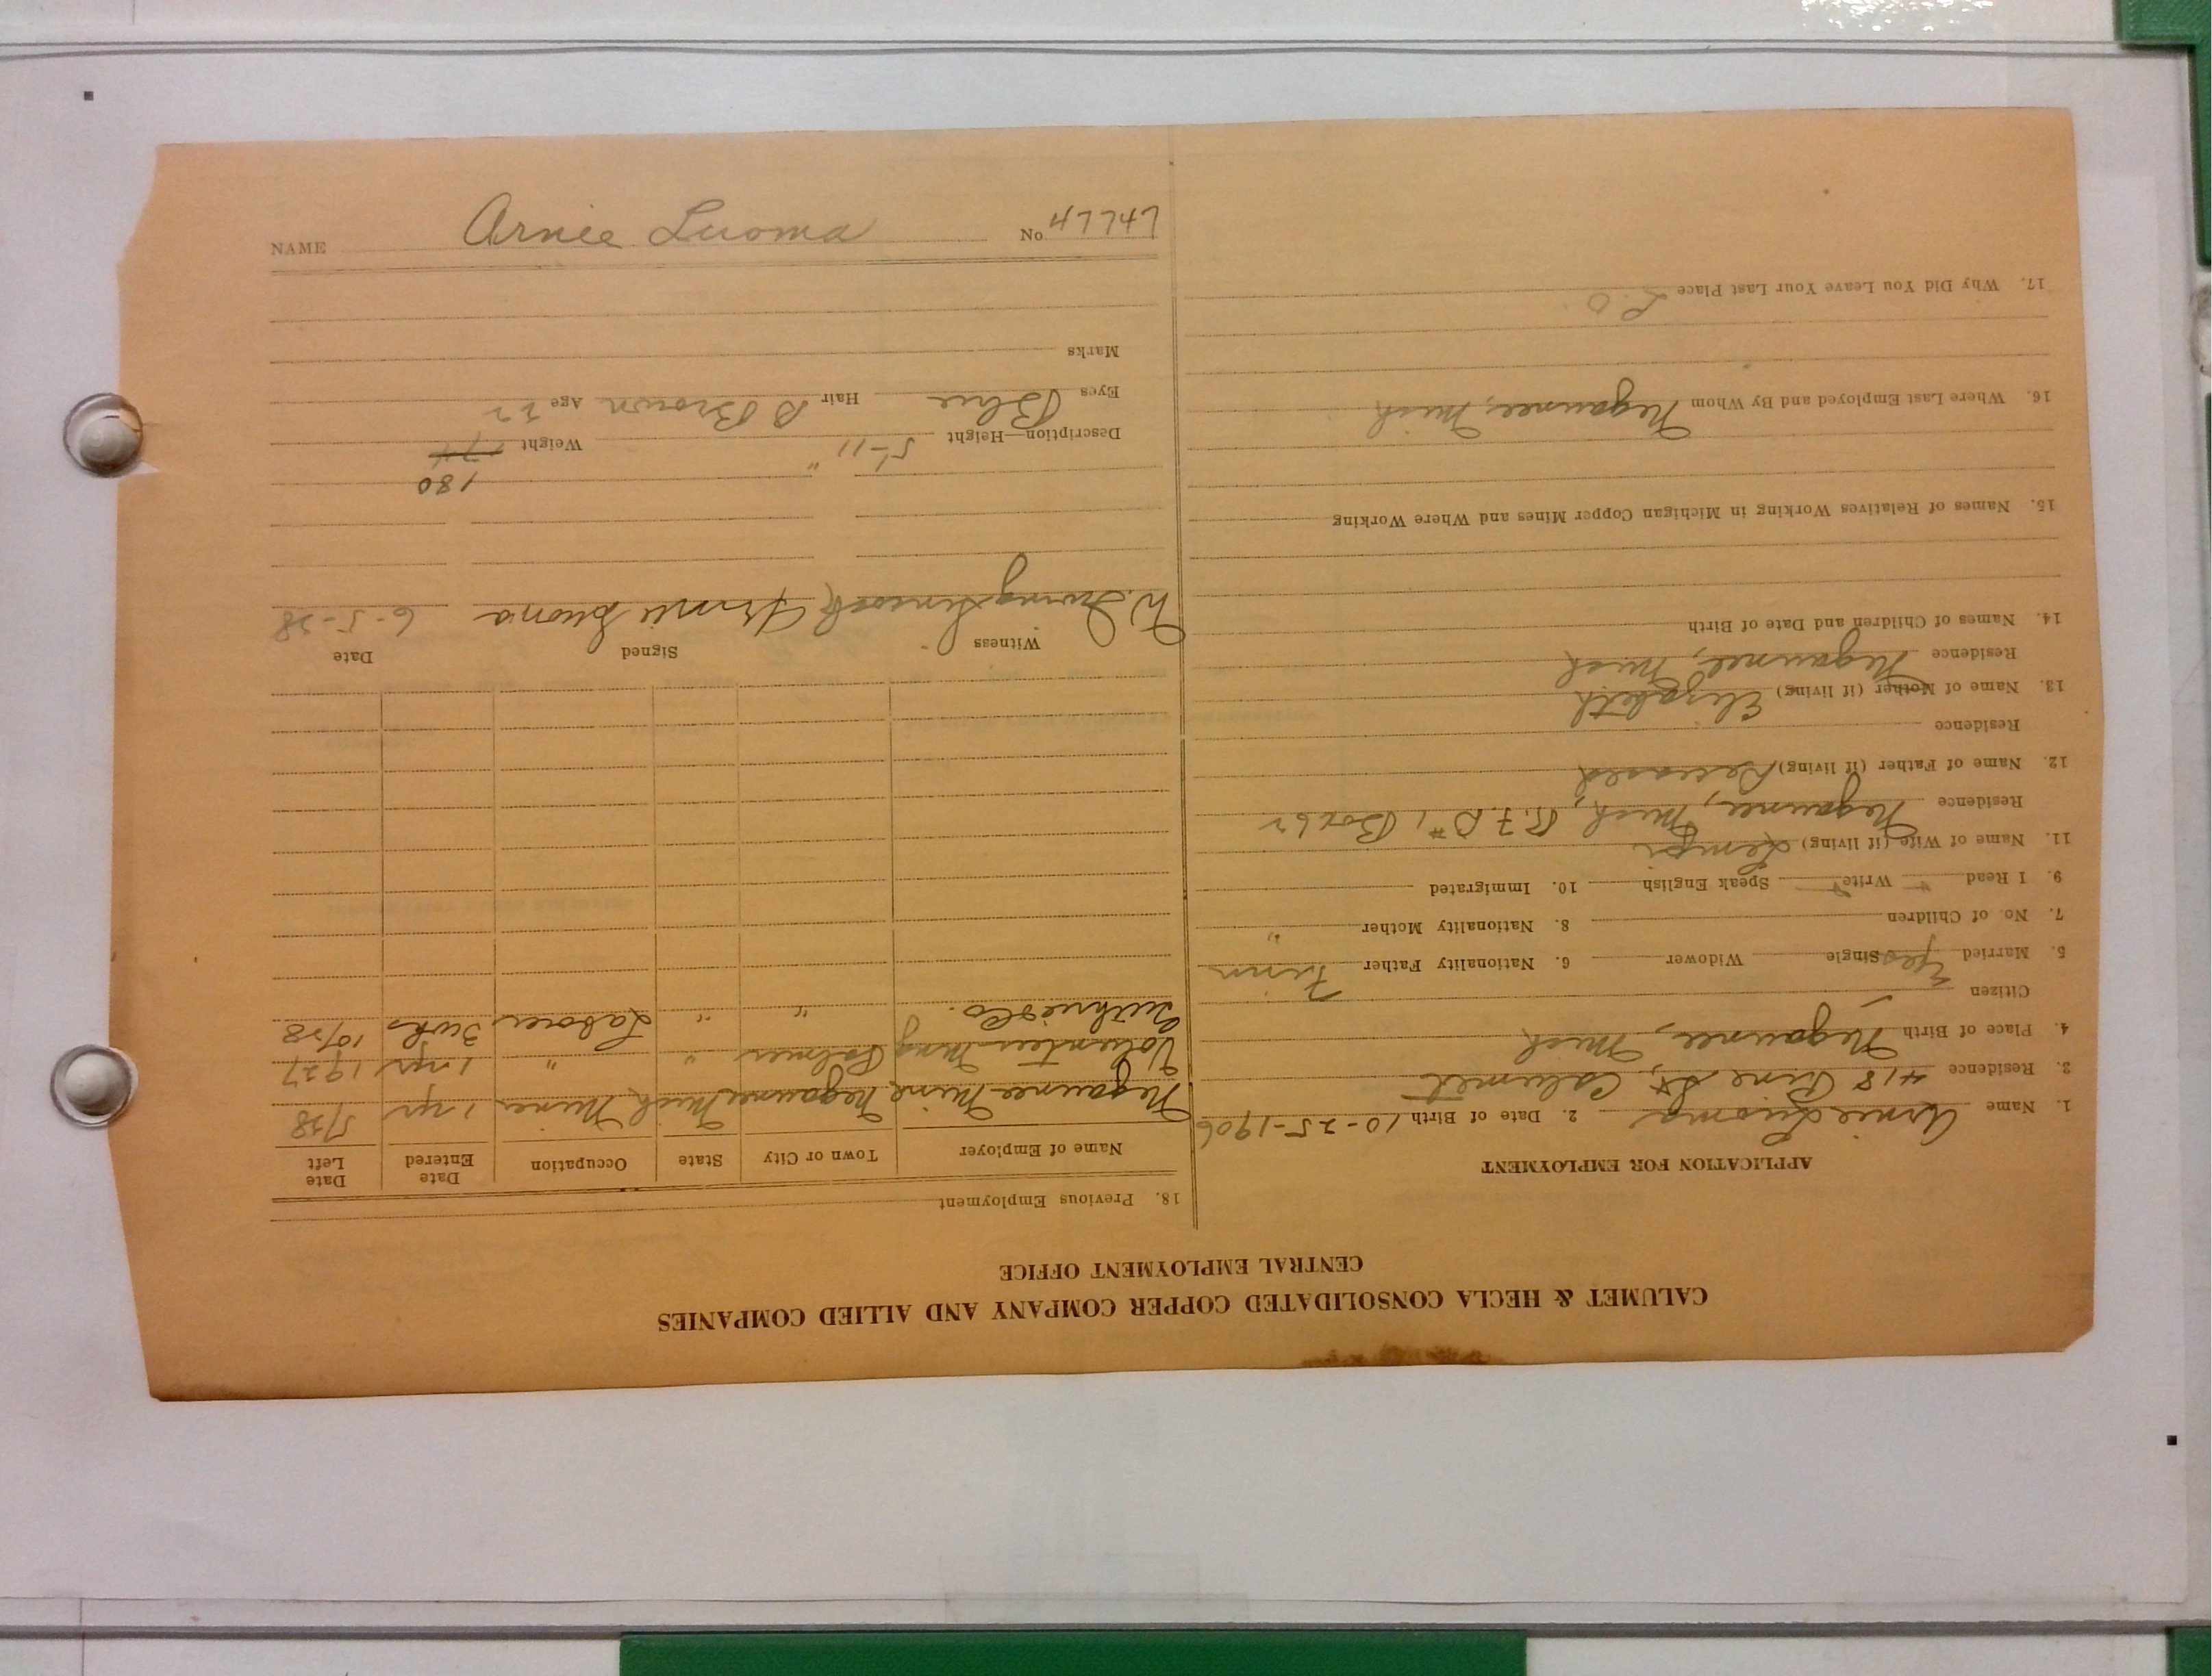 CALUMET & HECLA CONSOLIDATED COPPER COMPANY AND ALLIED COMPANIES
CENTRAL EMPLOYMENT OFFICE
APPLICATION FOR EMPLOYMENT
1. Name Arnie Luoma 2. Date of Birth 10-25-1906
3. Residence 418 Pine St, Calumet
4. Place of Birth Negaunee, Mich
Citizen
5. Married Yes Single Widower 6. Nationality Father Finn
7. No. of Children 8. Nationality Mother "
9. I Read Write Speak English 10. Immigrated
11. Name of Wife (if living) Lempi
Residence Negaunee, Mich, R.F.D #1 Box 62
12. Name of Father (if living) Deceased
Residence
13. Name of Mother (if living) Elizabeth
Residence Negaunee, Mich
14. Names of Children and Date of Birth
15. Names of Relatives Working in Michigan Copper Mines and Where Working
16. Where Last Employed and By Whom Negaunee, Mich
17. Why Did You Leave Your Last Place L.O
18. Previous Employment
Name of Employer Town or City State Occupation Date Entered Date Left
Negaunee Mine Negaunee Mich Miner 1 yr 5/28
Volunteer Mng Palmer " " 1 yr 1927
Guthrie & Co. " " Laborer 3 wks 10/28
Witness Signed Date
W. Irving Arnie Luoma 6-5-28
180
Description—Height 5'-11" Weight 174
Eyes Blue Hair D Brown Age 22
Marks
NAME Arnie Luoma No 47747